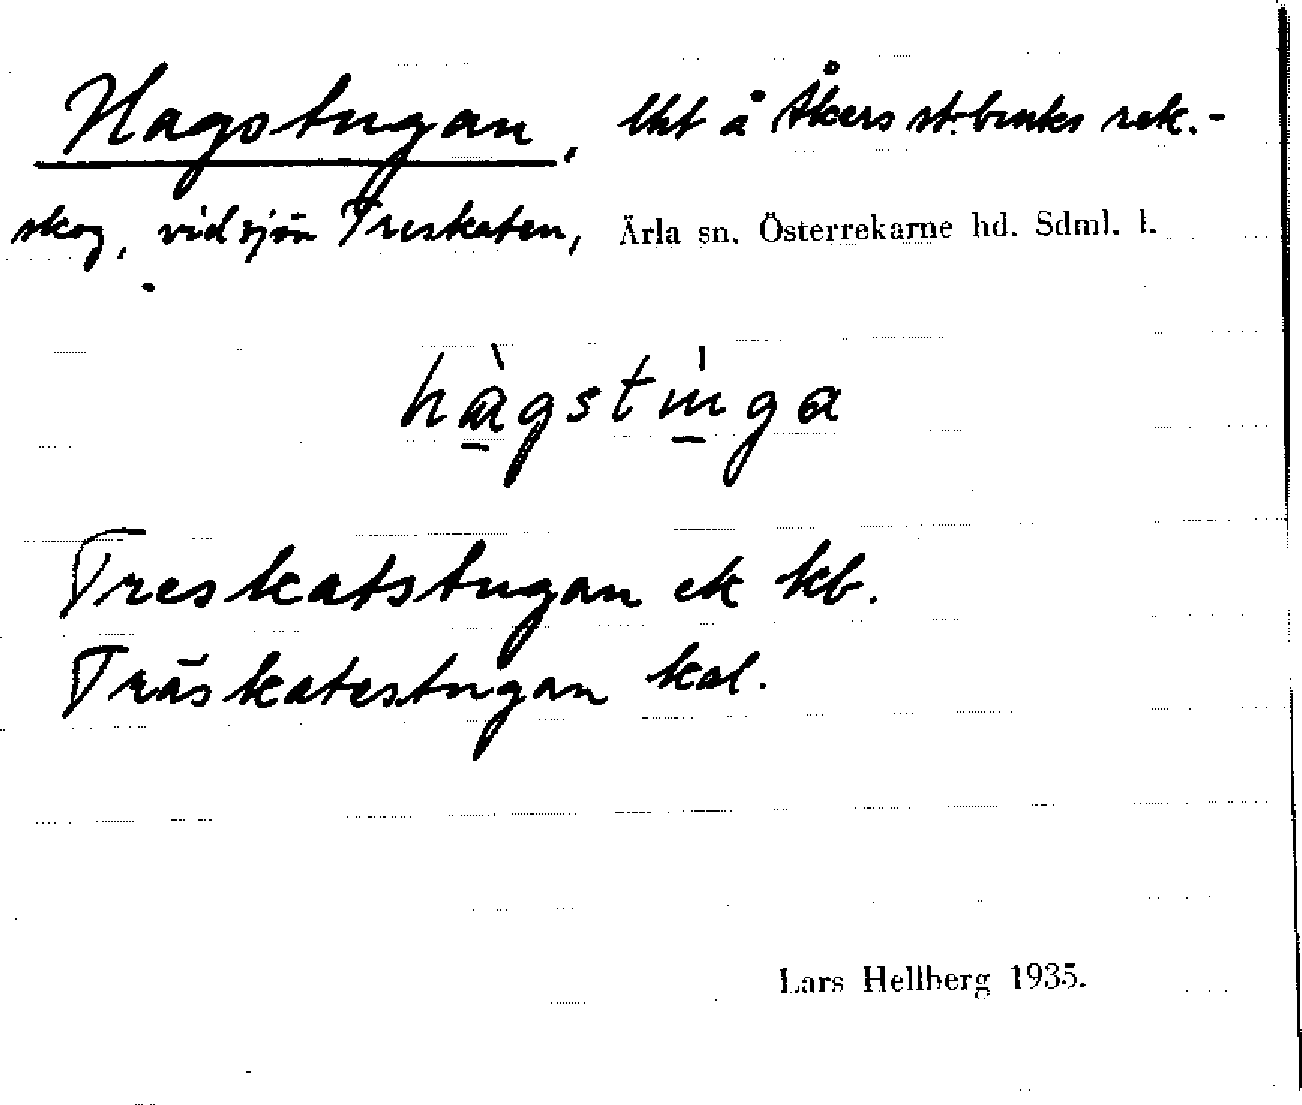 Hagstugan, lht å Åkers st.bruks rek.-
skog, vid sjön Treskaten, Ärla sn. Österrekarne hd. Sdml. l.
hàgstùga
Treskatstugan ek kb.
Träskatestugan kal.
Lars Hellberg 1935.